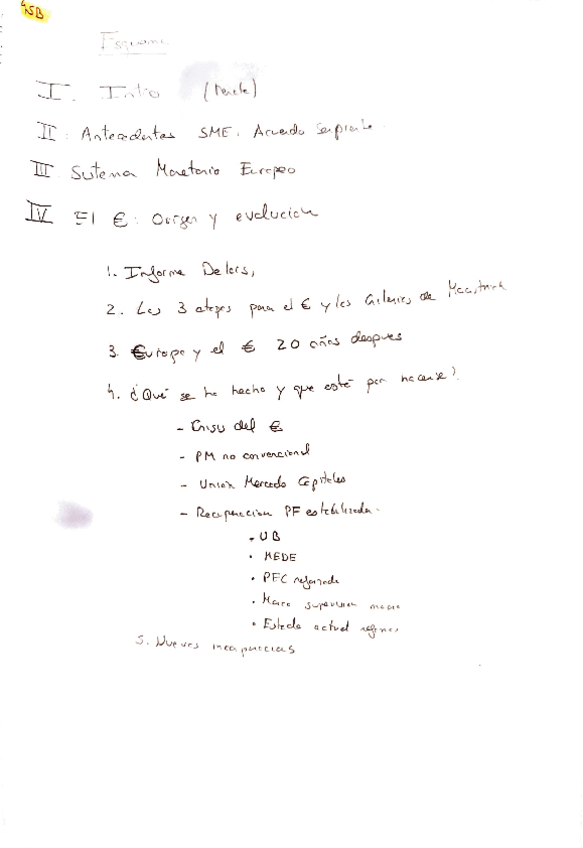 45B
Esquema
I. Intro
II. Antecedentes SME: Acuerdo Serpiente
III. Sistema Monetario Europeo
IV El €: Origen y evolución
1. Informe Delors,
2. Las 3 etapas para el € y los Criterios de Maastricht
3. Europa y el € 20 años después
4. ¿Qué se ha hecho y que está por hacerse?
- Crisis del €
- PM no convencional
- Unión Mercado Capitales
- Recuperación PF estabilizada.
• UB
• MEDE
• PEC reforzado
• Marco supervisión macro
• Estado actual
5. Nuevas